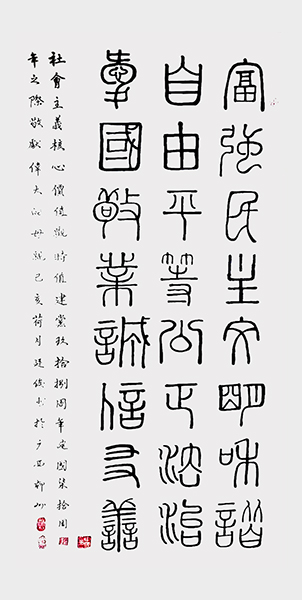 富強民主文明和諧
自由平等公正法治
愛國敬業誠信友善
社會主義核心價值觀時值建黨玖拾捌周年建國柒拾周
年之際敬獻偉大 己亥荷月 書於